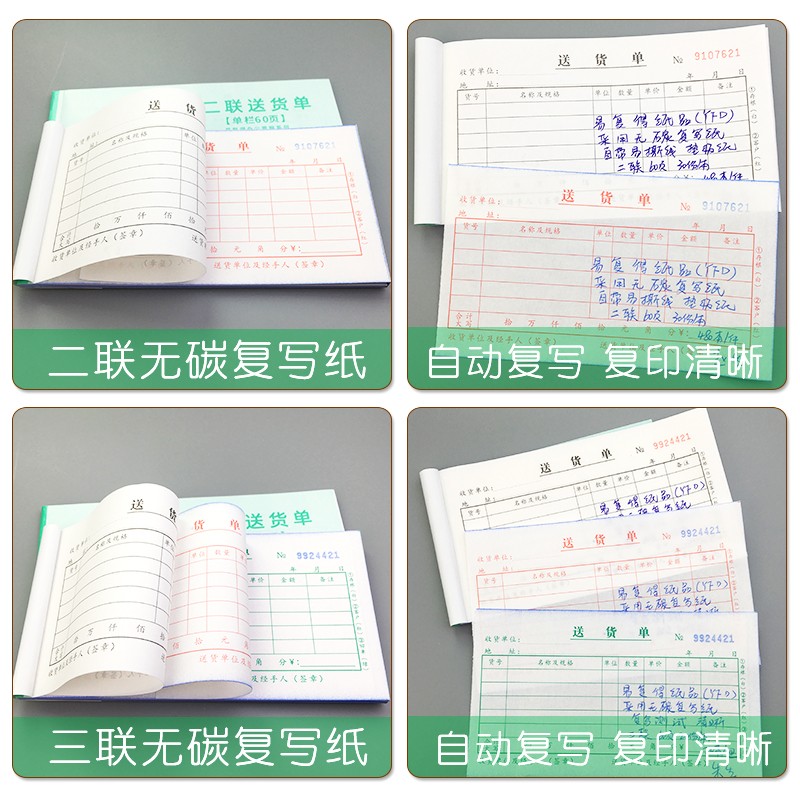 二联送货单
【单栏60页】
送 货
收货单位:
货号 名称及规格 单位
拾 万 仟 佰 拾
合计大写
收货单位及经手人(签章) 送货
货 单 № 9107621
年 月 日
单位 数量 单价 金额 备注
拾 元 角 分 ¥:
送货单位及经手人(签章):
二联无碳复写纸
送 货 单 № 9107621
收货单位:
地 址: 年 月 日
货号 名称及规格 单位 数量 单价 金额 备注
①存根(白) ②客户(红)
易复得纸品(YFD)
采用无碳复写纸
自带易撕线 垫板纸
二联 60页
送 货 单 № 9107621
收货单位:
地 址: 年 月 日
货号 名称及规格 单位 数量 单价 金额 备注
易复得纸品(YFD)
采用无碳复写纸
自带易撕线 垫板纸
二联 60页
合计大写 拾 万 仟 佰 拾 元 角 分 ¥:
收货单位及经手人(签章):
自动复写 复印清晰
送货单
送 货
货 单
№ 9924421
年 月 日
名称及规格
单位 数量
单价 金额 备注
万 仟 佰 拾 元 角 分 ¥:
收货单位及经手人(签章)
送货单位及
手人(签章):
三联无碳复写纸
送 货 单 № 9924421
收货单位:
地 址: 年 月 日
货号 名称及规格 单位 数量 单价 金额 备注
易复得纸品(YFD)
送 货 单 № 9924421
收货单位:
地 址: 年 月 日
货号 名称及规格 单位 数量 单价 金额 备注
易复得纸品(YFD)
采用无碳复写纸
送 货 单 № 9924421
收货单位:
地 址: 年 月 日
货号 名称及规格 单位 数量 单价 金额 备注
易复得纸品(YFD)
采用无碳复写纸
复写测试 清晰
自动复写 复印清晰